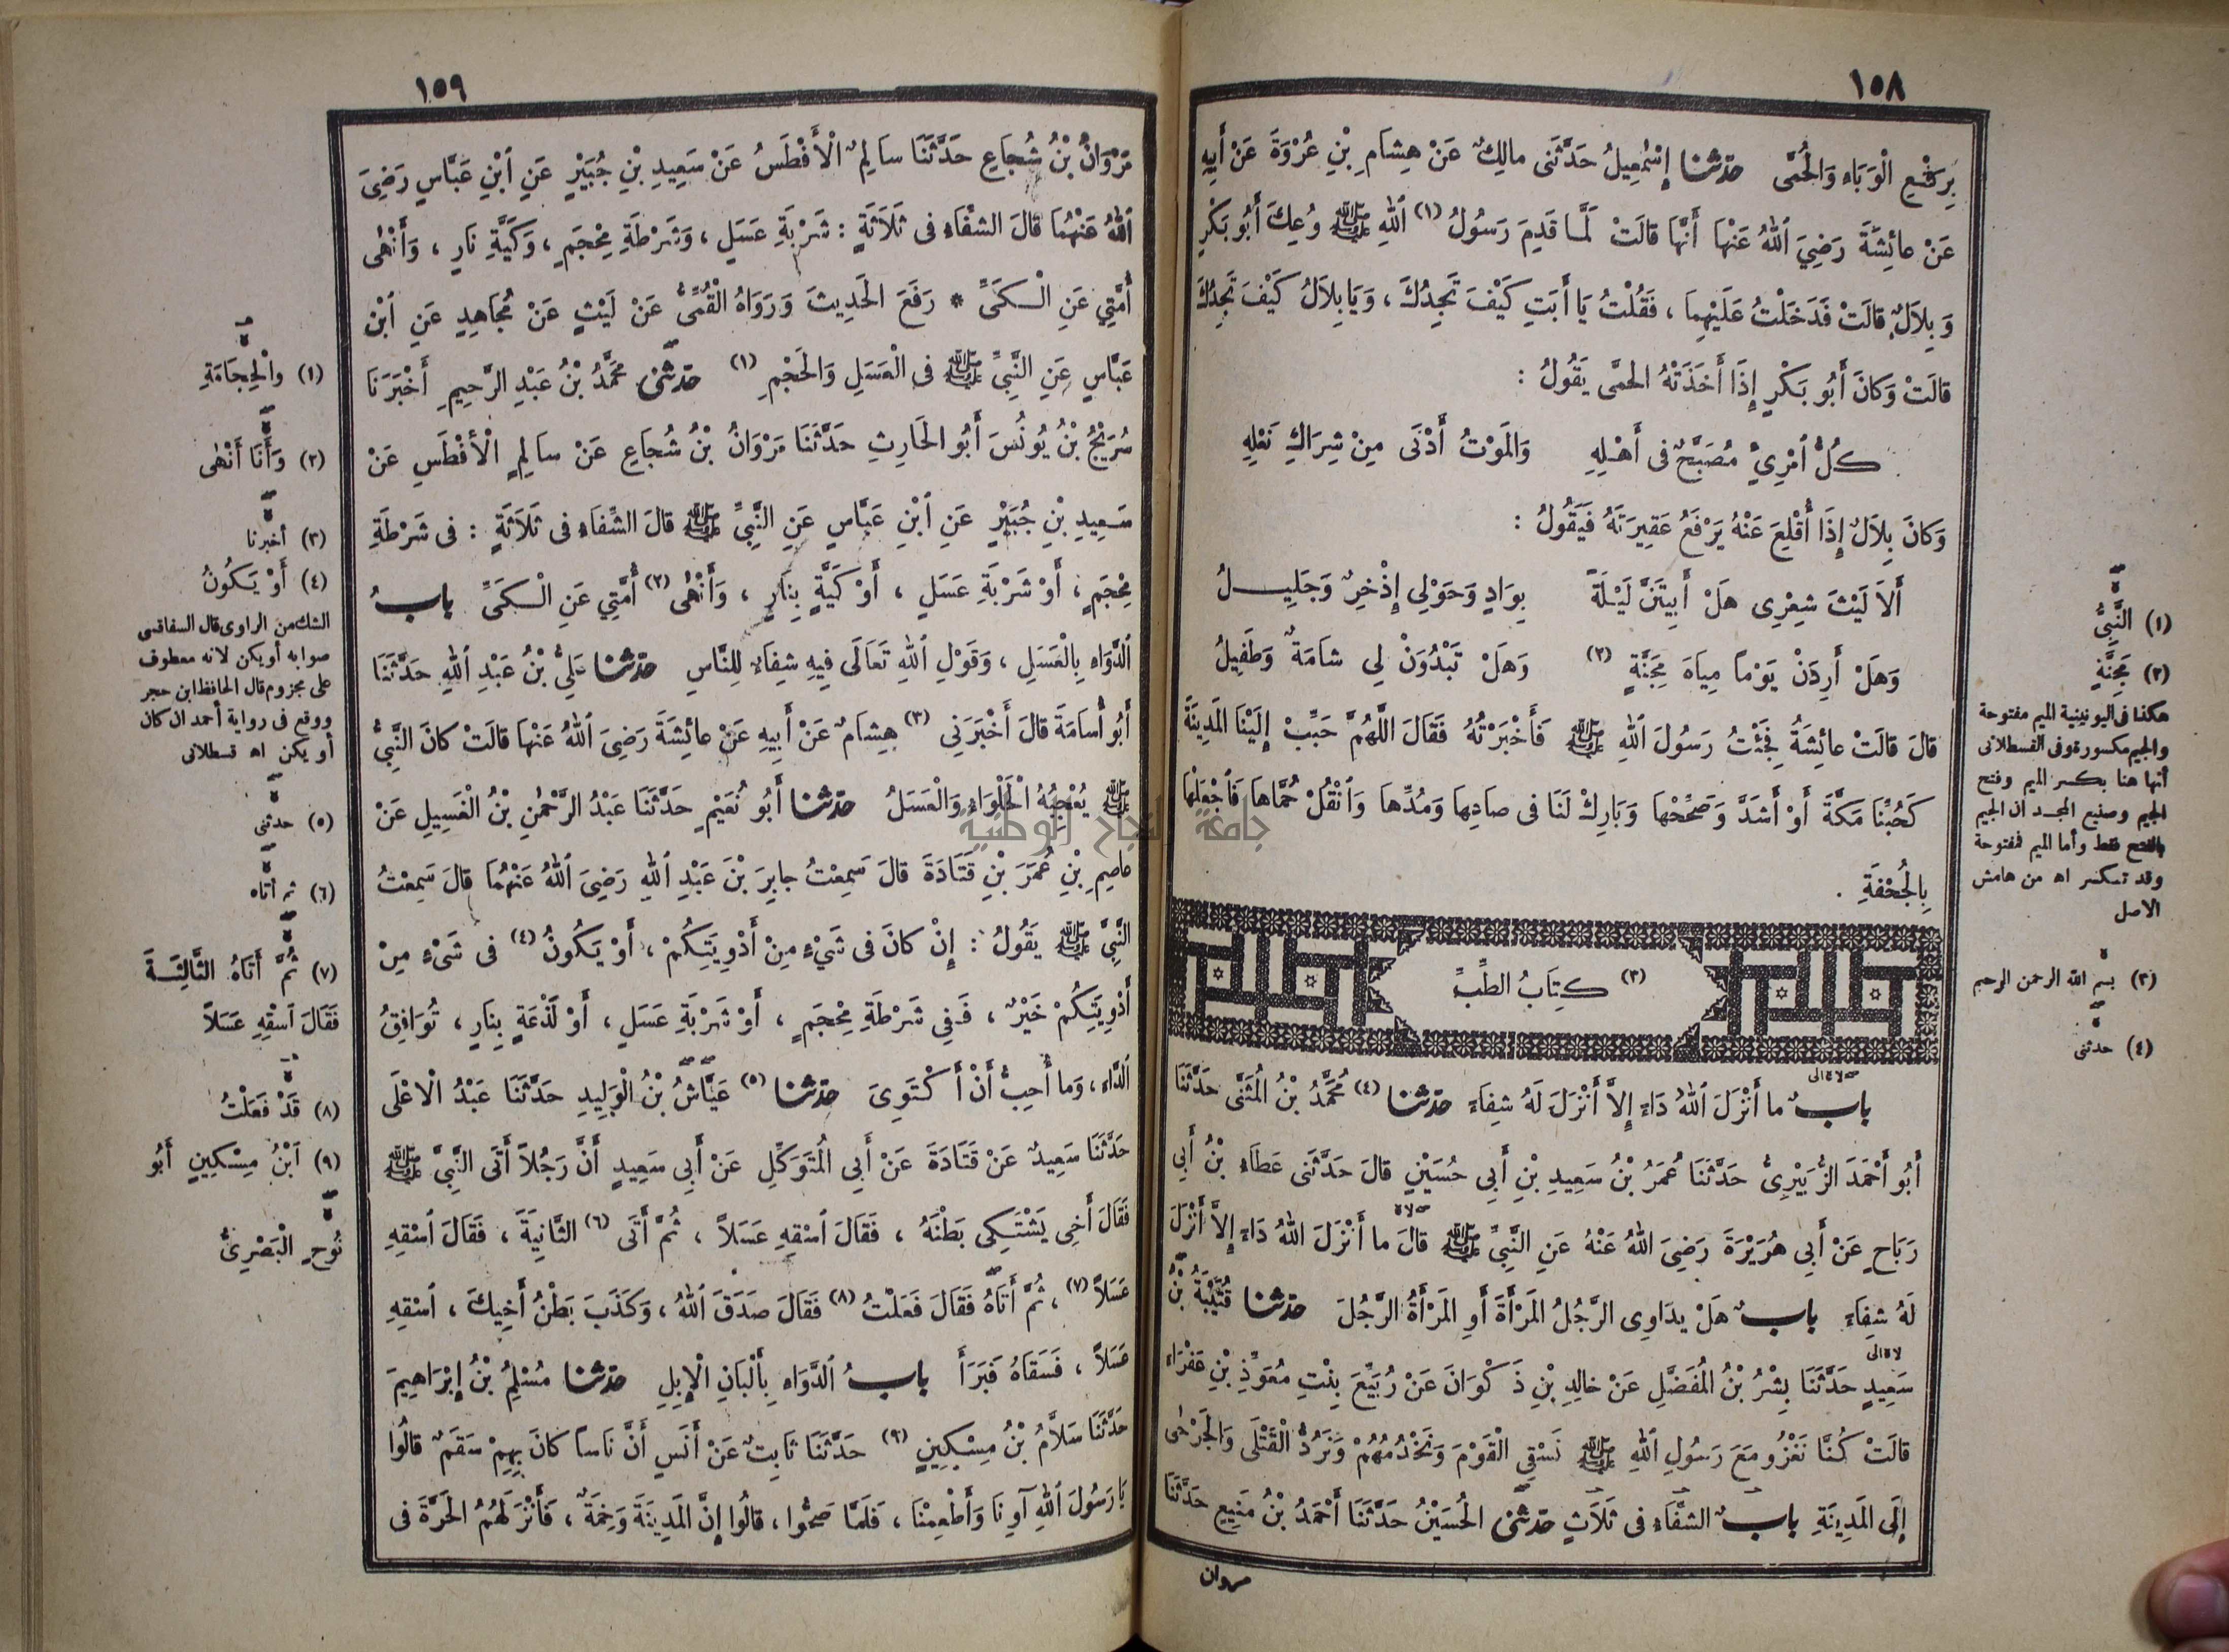 ١٥٨
بِرَفْعِ الْوَبَاءِ وَالْحُمَّى حدثنا إِسْمٰعِيلُ حَدَّثَنِى مالِكٌ عَنْ هِشَامِ بْنِ عُرْوَةَ عَنْ أَبِيهِ
عَنْ عائِشَةَ رَضِيَ اللهُ عَنْهَا أَنَّهَا قالَتْ لَمَّا قَدِمَ رَسُولُ (١) اللهِ ﷺ وُعِكَ أَبُو بَكْرٍ
وَبِلَالٌ قالَتْ فَدَخَلْتُ عَلَيْهِمَا ، فَقُلْتُ يَا أَبَتِ كَيْفَ تَجِدُكَ ، وَيَا بِلَالُ كَيْفَ تَجِدُكَ
قالَتْ وَكانَ أَبُو بَكْرٍ إِذَا أَخَذَتْهُ الحمَّى يَقُولُ :
كُلُّ امْرِئٍ مُصَبَّحٌ فى أَهْلِهِ وَالمَوْتُ أَدْنَى مِنْ شِرَاكِ نَعْلِهِ
وَكانَ بِلَالٌ إِذَا أُقْلِعَ عَنْهُ يَرْفَعُ عَقِيرَتَهُ فَيَقُولُ :
أَلَا لَيْتَ شِعْرِى هَلْ أَبِيتَنَّ لَيْلَةً بِوَادٍ وَحَوْلِى إِذْخِرٌ وَجَلِيلُ
وَهَلْ أَرِدَنْ يَوْماً مِيَاهَ مِجَنَّةٍ (٢) وَهَلْ تَبْدُوَنْ لِي شامَةٌ وَطَفِيلُ
قالَ قالَتْ عائِشَةُ فَجِئْتُ رَسُولَ اللهِ ﷺ فَأَخْبَرْتُهُ فَقَالَ اللَّهُمَّ حَبِّبْ إِلَيْنَا المَدِينَةَ
كَحُبِّنَا مَكَّةَ أَوْ أَشَدَّ وَصَحِّحْهَا وَبَارِكْ لَنَا فى صاعِهَا وَمُدِّها وَانْقُلْ حُمَّاهَا فَاجْعَلْهَا
بِالجُحْفَةِ .
(٣) كِتَابُ الطِّبِّ
بابٌ ما أَنْزَلَ اللهُ دَاءً إِلاَّ أَنْزَلَ لَهُ شِفَاءً حدثنا (٤) مُحَمَّدُ بْنُ الْمُثَنَّى حَدَّثَنَا
أَبُو أَحْمَدَ الزُّبَيْرِىُّ حَدَّثَنَا عُمَرُ بْنُ سَعِيدِ بْنِ أَبِى حُسَيْنٍ قالَ حَدَّثَنِى عَطَاءُ بْنُ أَبِي
رَبَاحٍ عَنْ أَبِى هُرَيْرَةَ رَضِىَ اللهُ عَنْهُ عَنِ النَّبِيِّ ﷺ قالَ ما أَنْزَلَ اللهُ دَاءً إِلاَّ أَنْزَلَ
لَهُ شِفَاءً بابٌ هَلْ يدَاوِى الرَّجُلُ المَرْأَةَ أَوِ المَرْأَةُ الرَّجُلَ حدثنا قُتَيْبَةُ بْنُ
سَعِيدٍ حَدَّثَنَا بِشْرُ بْنُ الْمُفَضَّلِ عَنْ خالِدِ بْنِ ذَكْوَانَ عَنْ رُبَيِّعَ بِنْتِ مُعَوِّذِ بْنِ عَفْرَاءَ
قالَتْ كُنَّا نَغْزُو مَعَ رَسُولِ اللهِ ﷺ نَسْقِى الْقَوْمَ وَنَخْدُمُهُمْ وَنَرُدُّ الْقَتْلَى وَالجَرْحٰى
إِلَى المَدِينَةِ بابٌ الشِّفَاءُ فى ثَلاَثٍ حدثنى الحُسَيْنُ حَدَّثَنَا أَحْمَدُ بْنُ مَنِيعٍ حَدَّثَنَا
مروان
(١) النَّبِيُّ
(٢) مَجِنَّةٍ
هكذا فى اليونينية الميم مفتوحة
والجيم مكسورة وفى القسطلانى
أنها هنا بكسر الميم وفتح
الجيم وصنيع المجد ان الجيم
بالفتح فقط وأما الميم فمفتوحة
وقد تكسر اه من هامش
الاصل
(٣) بسم الله الرحمن الرحيم
(٤) حدثنى
١٥٩
مَرْوَانُ بْنُ شُجَاعٍ حَدَّثَنَا سالِمٌ الْأَفْطَسُ عَنْ سَعِيدِ بْنِ جُبَيْرٍ عَنِ ابْنِ عَبَّاسٍ رَضِيَ
اللهُ عَنْهُمَا قالَ الشِّفَاءُ فى ثَلَاثَةٍ : شَرْبَةِ عَسَلٍ ، وَشَرْطَةِ مِحْجَمٍ ، وَكَيَّةِ نَارٍ ، وَأَنْهٰى
أُمَّتِي عَنِ الْكَىِّ * رَفَعَ الحَدِيثَ وَرَوَاهُ الْقُمِّىُّ عَنْ لَيْثٍ عَنْ مُجَاهِدٍ عَنِ ابْنِ
عَبَّاسٍ عَنِ النَّبِيِّ ﷺ فى الْعَسَلِ وَالحَجْمِ (١) حدثنى مُحَمَّدُ بْنُ عَبْدِ الرَّحِيمِ أَخْبَرَنَا
سُرَيْجُ بْنُ يُونُسَ أَبُو الحَارِثِ حَدَّثَنَا مَرْوَانُ بْنُ شُجَاعٍ عَنْ سالِمٍ الْأَفْطَسِ عَنْ
سَعِيدِ بْنِ جُبَيْرٍ عَنِ ابْنِ عَبَّاسٍ عَنِ النَّبِيِّ ﷺ قالَ الشِّفَاءُ فى ثَلَاثَةٍ : فى شَرْطَةِ
مِحْجَمٍ ، أَوْ شَرْبَةِ عَسَلٍ ، أَوْ كَيَّةٍ بِنَارٍ ، وَأَنْهٰى (٢) أُمَّتِي عَنِ الْكَىِّ بابُ
الدَّوَاءِ بِالْعَسَلِ ، وَقَوْلِ اللهِ تَعَالَى فِيهِ شِفَاءٌ لِلنَّاسِ حدثنا عَلِيُّ بْنُ عَبْدِ اللهِ حَدَّثَنَا
أَبُو أُسَامَةَ قالَ أَخْبَرَنِي (٣) هِشَامٌ عَنْ أَبِيهِ عَنْ عائِشَةَ رَضِىَ اللهُ عَنْهَا قالَتْ كانَ النَّبِيُّ
ﷺ يُعْجِبُهُ الْحَلْوَاءُ وَالْعَسَلُ حدثنا أَبُو نُعَيْمٍ حَدَّثَنَا عَبْدُ الرَّحْمٰنِ بْنُ الْغَسِيلِ عَنْ
عاصِمِ بْنِ عُمَرَ بْنِ قَتَادَةَ قالَ سَمِعْتُ جابِرَ بْنَ عَبْدِ اللهِ رَضِيَ اللهُ عَنْهُمَا قالَ سَمِعْتُ
النَّبِيَّ ﷺ يَقُولُ : إِنْ كانَ فى شَيْءٍ مِنْ أَدْوِيَتِكُمْ ، أَوْ يَكُونُ (٤) فى شَىْءٍ مِنْ
أَدْوِيَتِكُمْ خَيْرٌ ، فَفِى شَرْطَةِ مِحْجَمٍ ، أَوْ شَرْبَةِ عَسَلٍ ، أَوْ لَذْعَةٍ بِنَارٍ ، تُوَافِقُ
الدَّاءَ ، وَما أُحِبُّ أَنْ أَكْتَوِىَ حدثنا (٥) عَيَّاشُ بْنُ الْوَلِيدِ حَدَّثَنَا عَبْدُ الْاعْلَى
حَدَّثَنَا سَعِيدٌ عَنْ قَتَادَةَ عَنْ أَبِي الْمُتَوَكِّلِ عَنْ أَبِي سَعِيدٍ أَنَّ رَجُلاً أَتَى النَّبِيَّ ﷺ
فَقَالَ أَخِى يَشْتَكِى بَطْنَهُ ، فَقَالَ اسْقِهِ عَسَلاً ، ثُمَّ أَتَى (٦) الثَّانِيَةَ ، فَقَالَ اسْقِهِ
عَسَلاً (٧) ، ثُمَّ أَتَاهُ فَقَالَ فَعَلْتُ (٨) فَقَالَ صَدَقَ اللهُ ، وَكَذَبَ بَطْنُ أَخِيكَ ، اسْقِهِ
عَسَلاً ، فَسَقَاهُ فَبَرَأَ بابُ الدَّوَاءِ بِأَلْبَانِ الْإِبِلِ حدثنا مُسْلِمُ بْنُ إِبْرَاهِيمَ
حَدَّثَنَا سَلَّامُ بْنُ مِسْكِينٍ (٩) حَدَّثَنَا ثَابِتٌ عَنْ أَنَسٍ أَنَّ نَاساً كانَ بِهِمْ سَقَمٌ قالُوا
يَا رَسُولَ اللهِ آوِنَا وَأَطْعِمْنَا ، فَلَمَّا صَحُّوا ، قالُوا إِنَّ المَدِينَةَ وَخِمَةٌ ، فَأَنْزَلَهُمُ الحَرَّةَ فى
(١) والْحِجَامَةِ
(٢) وَأَنَا أَنْهٰى
(٣) أخبرنا
(٤) أَوْ يَكُونُ
الشك من الراوى قال السفاقسى
صوابه أو يكن لانه معطوف
على مجزوم قال الحافظ ابن حجر
ووقع فى رواية أحمد ان كان
أو يكن اه قسطلانى
(٥) حدثنى
(٦) ثم أتاه
(٧) ثُمَّ أَتَاهُ الثَّالِثَةَ
فَقَالَ اسْقِهِ عَسَلاً
(٨) قَدْ فَعَلْتُ
(٩) ابْنُ مِسْكِينٍ أَبُو
نُوحٍ الْبَصْرِىُّ
جامعة النجاح الوطنية